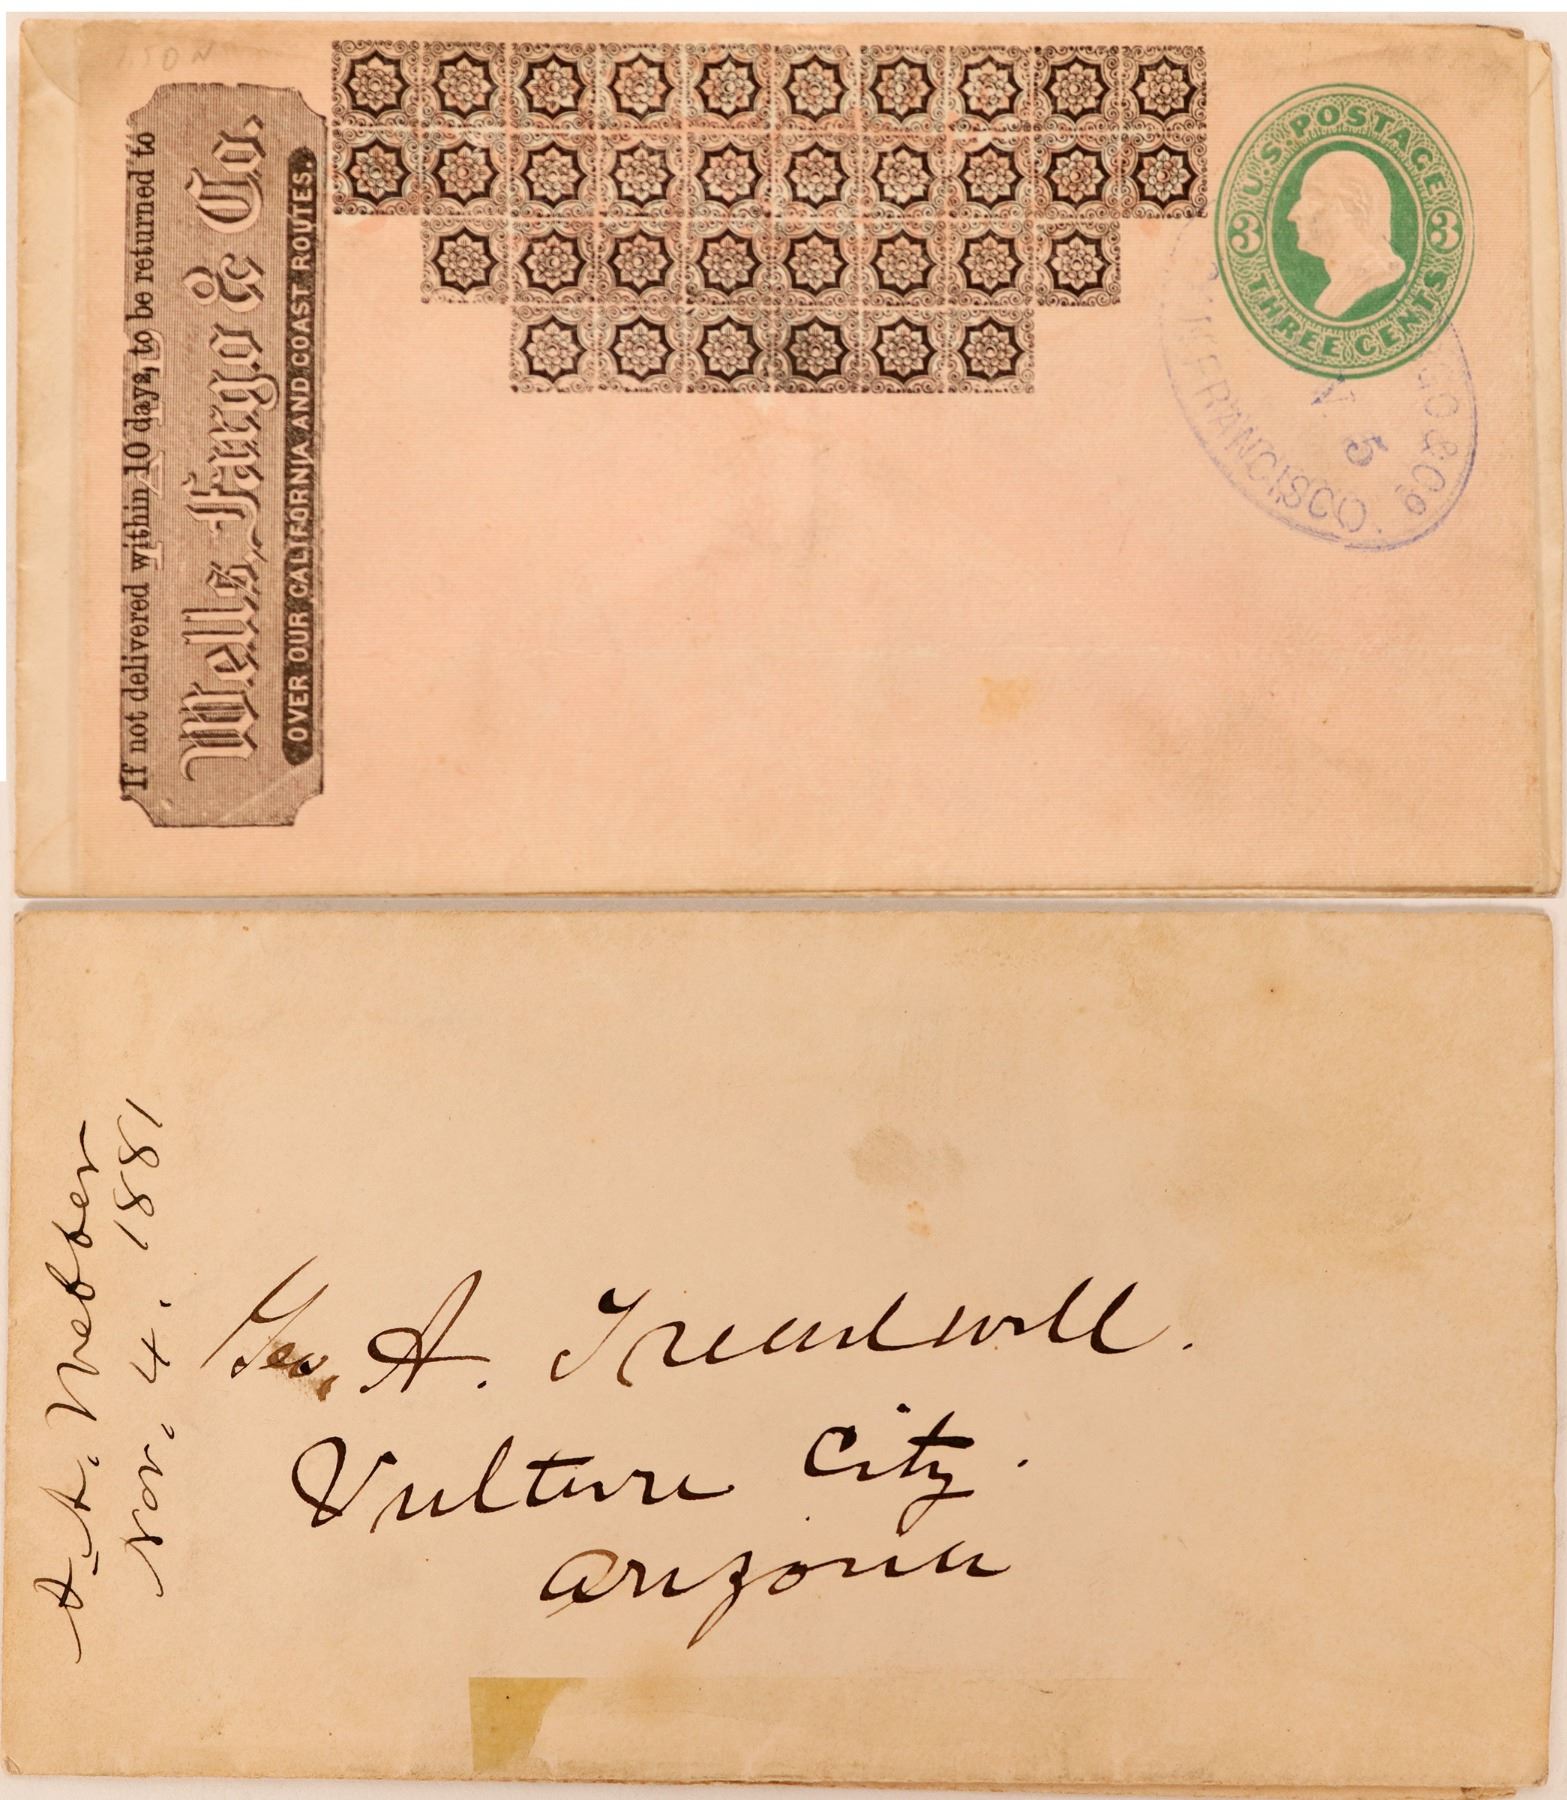 If not delivered within 10 days, to be returned to
Wells, Fargo & Co.
OVER OUR CALIFORNIA AND COAST ROUTES.
U.S. POSTAGE
3 3
THREE CENTS
GO & Co
V. 5
N FRANCISCO
A. A. Webber
Nov. 4. 1881
Geo. A. Treadwell.
Vulture City.
Arizona